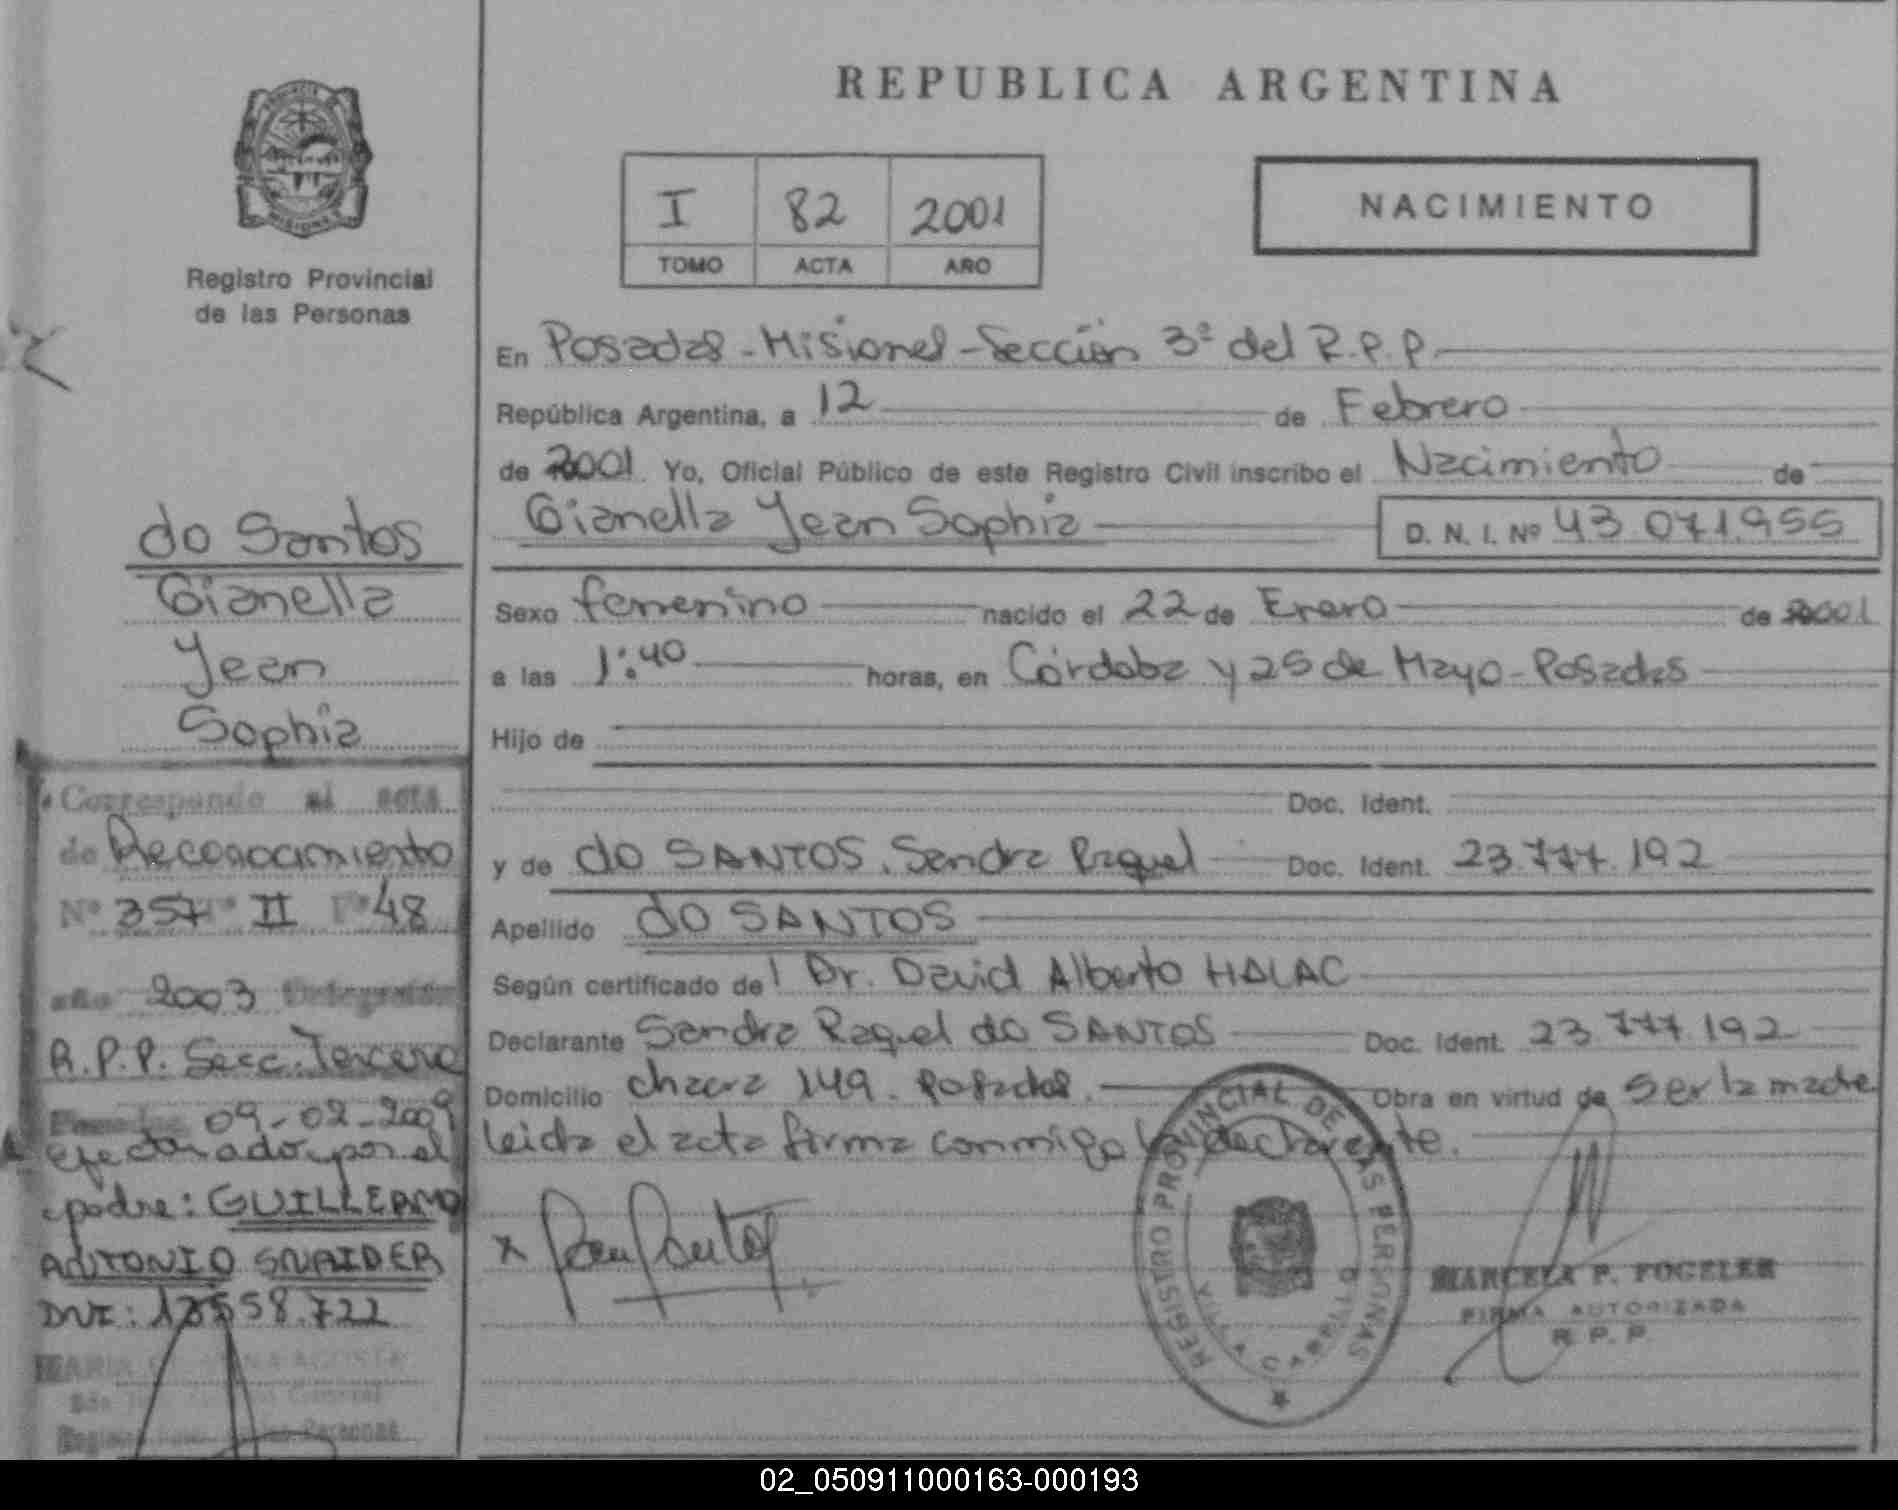 REPUBLICA ARGENTINA
PROVINCIA DE
MISIONES
Registro Provincial
de las Personas
I 82 2001
TOMO ACTA AÑO
NACIMIENTO
En Posadas - Misiones - Sección 3ª del R.P.P.
República Argentina, a 12 de Febrero
de 2001. Yo, Oficial Público de este Registro Civil inscribo el Nacimiento de
Gianella Jean Sophia D. N. I. Nº 43.071.955
Sexo femenino nacido el 22 de Enero de 2001
a las 1:40 horas, en Córdoba y 25 de Mayo - Posadas
Hijo de
Doc. Ident.
y de do SANTOS, Sandra Raquel Doc. Ident. 23.777.192
Apellido do SANTOS
Según certificado del Dr. David Alberto HALAC
Declarante Sandra Raquel do SANTOS Doc. Ident. 23.777.192
Domicilio chacra 149. Posadas. Obra en virtud de ser la madre
leida el acta firma conmigo la declarante.
x
REGISTRO PROVINCIAL DE LAS PERSONAS
VILLA CABELLO
MARCELA P. FOGELER
FIRMA AUTORIZADA
R. P. P.
do Santos
Gianella
Jean
Sophia
Corresponde al acta
de Reconocimiento
Nº 357 Tº II Fº 48
año 2003 Delegación
R.P.P. Secc. Tercera
Posadas, 09-02-2009
efectuado por el
padre: GUILLERMO
ANTONIO SNAIDER
DNI: 13558.722
MARIA
Personas
02_050911000163-000193